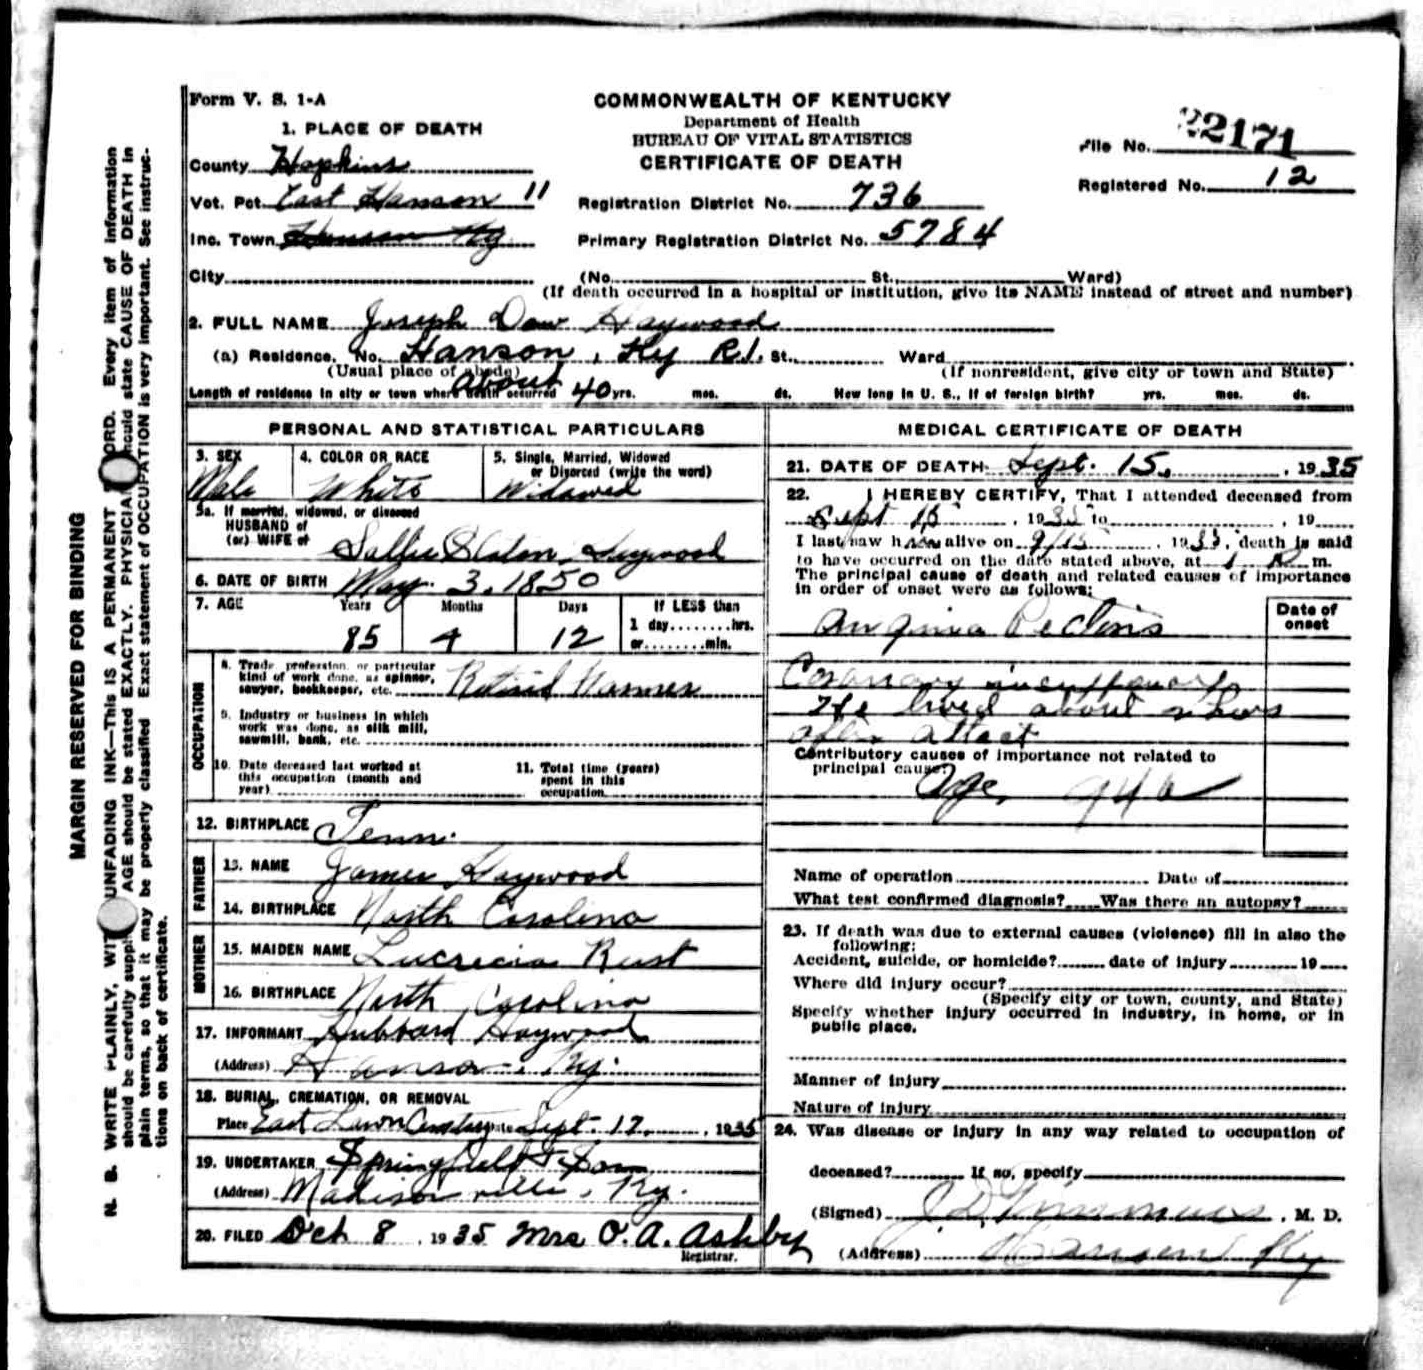 Form V. S. 1-A
COMMONWEALTH OF KENTUCKY
Department of Health
BUREAU OF VITAL STATISTICS
CERTIFICATE OF DEATH
File No. 22171
Registered No. 12
1. PLACE OF DEATH
County Hopkins
Vot. Pct. East Hanson 11
Registration District No. 736
Inc. Town Hanson Ky
Primary Registration District No. 5784
City (No. St., Ward)
(If death occurred in a hospital or institution, give its NAME instead of street and number)
2. FULL NAME Joseph Dow Haywood
(a) Residence. No. Hanson, Ky R.1. St., Ward
(Usual place of abode) (If nonresident, give city or town and State)
Length of residence in city or town where death occurred About 40 yrs. mos. ds. How long in U. S., if of foreign birth? yrs. mos. ds.
PERSONAL AND STATISTICAL PARTICULARS
3. SEX Male
4. COLOR OR RACE White
5. Single, Married, Widowed
or Divorced (write the word)
Widowed
5a. If married, widowed, or divorced
HUSBAND of
(or) WIFE of Sallie Haywood
6. DATE OF BIRTH May 3, 1850
7. AGE Years 85 Months 4 Days 12
If LESS than
1 day........hrs.
or........min.
OCCUPATION
8. Trade, profession, or particular
kind of work done, as spinner,
sawyer, bookkeeper, etc. Retired Farmer
9. Industry or business in which
work was done, as silk mill,
sawmill, bank, etc.
10. Date deceased last worked at
this occupation (month and
year)
11. Total time (years)
spent in this
occupation
12. BIRTHPLACE Tenn.
FATHER
13. NAME James Haywood
14. BIRTHPLACE North Carolina
MOTHER
15. MAIDEN NAME Lucrecia Rust
16. BIRTHPLACE North Carolina
17. INFORMANT Hubbard Haywood
(Address) Hanson, Ky.
18. BURIAL, CREMATION, OR REMOVAL
Place East Lawn Cemetery Date Sept. 17, 1935
19. UNDERTAKER Springfield & Son
(Address) Madisonville, Ky.
20. FILED Oct 8, 1935 Mrs O. A. Ashby
Registrar.
MEDICAL CERTIFICATE OF DEATH
21. DATE OF DEATH Sept. 15, 1935
22. I HEREBY CERTIFY, That I attended deceased from
Sept 15, 1935 to , 19
I last saw h alive on 9/15, 1935, death is said
to have occurred on the date stated above, at 1 P m.
The principal cause of death and related causes of importance
in order of onset were as follows:
Date of
onset
Angina Pectoris
Coronary
He lived about hours
after attack
Contributory causes of importance not related to
principal cause:
Age, 94b
Name of operation Date of
What test confirmed diagnosis? Was there an autopsy?
23. If death was due to external causes (violence) fill in also the
following:
Accident, suicide, or homicide? date of injury 19
Where did injury occur?
(Specify city or town, county, and State)
Specify whether injury occurred in industry, in home, or in
public place.
Manner of injury
Nature of injury
24. Was disease or injury in any way related to occupation of
deceased? If so, specify
(Signed) , M. D.
(Address) Hanson Ky
MARGIN RESERVED FOR BINDING
N. B. WRITE PLAINLY, WITH UNFADING INK—THIS IS A PERMANENT RECORD. Every item of information
should be carefully supplied. AGE should be stated EXACTLY. PHYSICIANS should state CAUSE OF DEATH in
plain terms, so that it may be properly classified. Exact statement of OCCUPATION is very important. See instruc-
tions on back of certificate.